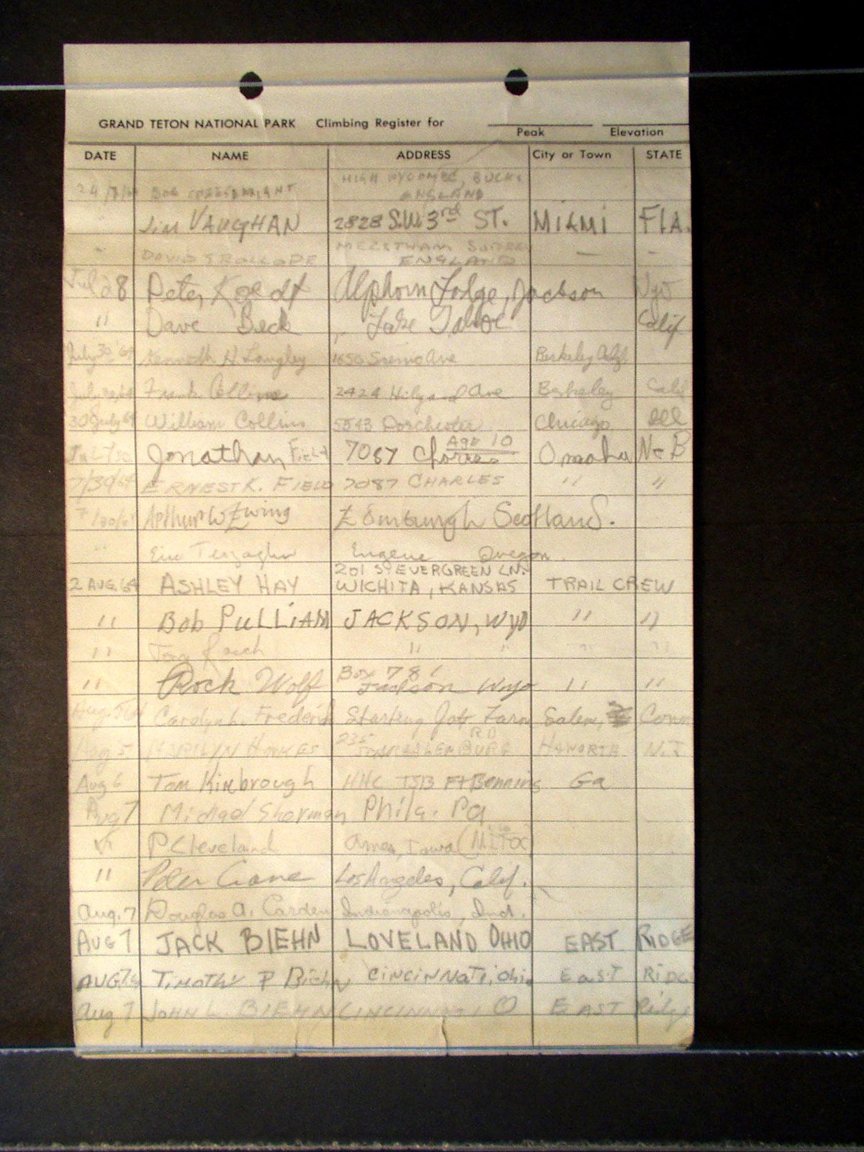 GRAND TETON NATIONAL PARK Climbing Register for
Peak Elevation
DATE NAME ADDRESS City or Town STATE
HIGH WYCOMBE, BUCKS
BOB ENGLAND
" Jim VAUGHAN 2828 S.W. 3rd ST. MIAMI FLA.
" DAVID TROLLOPE MERSTHAM SURREY — —
ENGLAND
28 Peter Alphorn Lodge, Jackson Wyo
" Dave Beck Lake Tahoe Calif
July 30 '64 Kenneth H Langley Ave Berkeley Calif
Frank Collins 2424 Hilgard Ave Berkeley Calif
30 July 64 William Collins 5543 Dorchester Chicago Ill
Age 10
Jonathan FIELD 7087 Omaha NEB
7/30/64 ERNEST K. FIELD 7087 CHARLES " "
7/30/64 Arthur W Ewing Edinburgh Scotland.
" Eric Eugene Oregon
201 S EVERGREEN LN.
2 AUG. 64 ASHLEY HAY WICHITA, KANSAS TRAIL CREW
" Bob PULLIAM JACKSON, WYO " "
" " " " "
" Rock Wolf Box 786 Jackson Wyo " "
Carolyn L. Frederick Farm Salem, Conn
Aug 5 MARILYN 235 RD HAWORTH N.J.
Aug 6 Tom Kimbrough HHC TSB Ft Benning Ga
Aug 7 Michael Sherman Phila. Pa
P. Cleveland Ames, Iowa
" Peter Crane Los Angeles, Calif.
Aug. 7 Douglas A. Carden Indianapolis, Ind.
AUG 7 JACK BIEHN LOVELAND OHIO EAST RIDGE
AUG 7 TIMOTHY P Biehn CINCINNATI, Ohio EAST RIDGE
Aug 7 JOHN L. BIEHN CINCINNATI O EAST Ridge